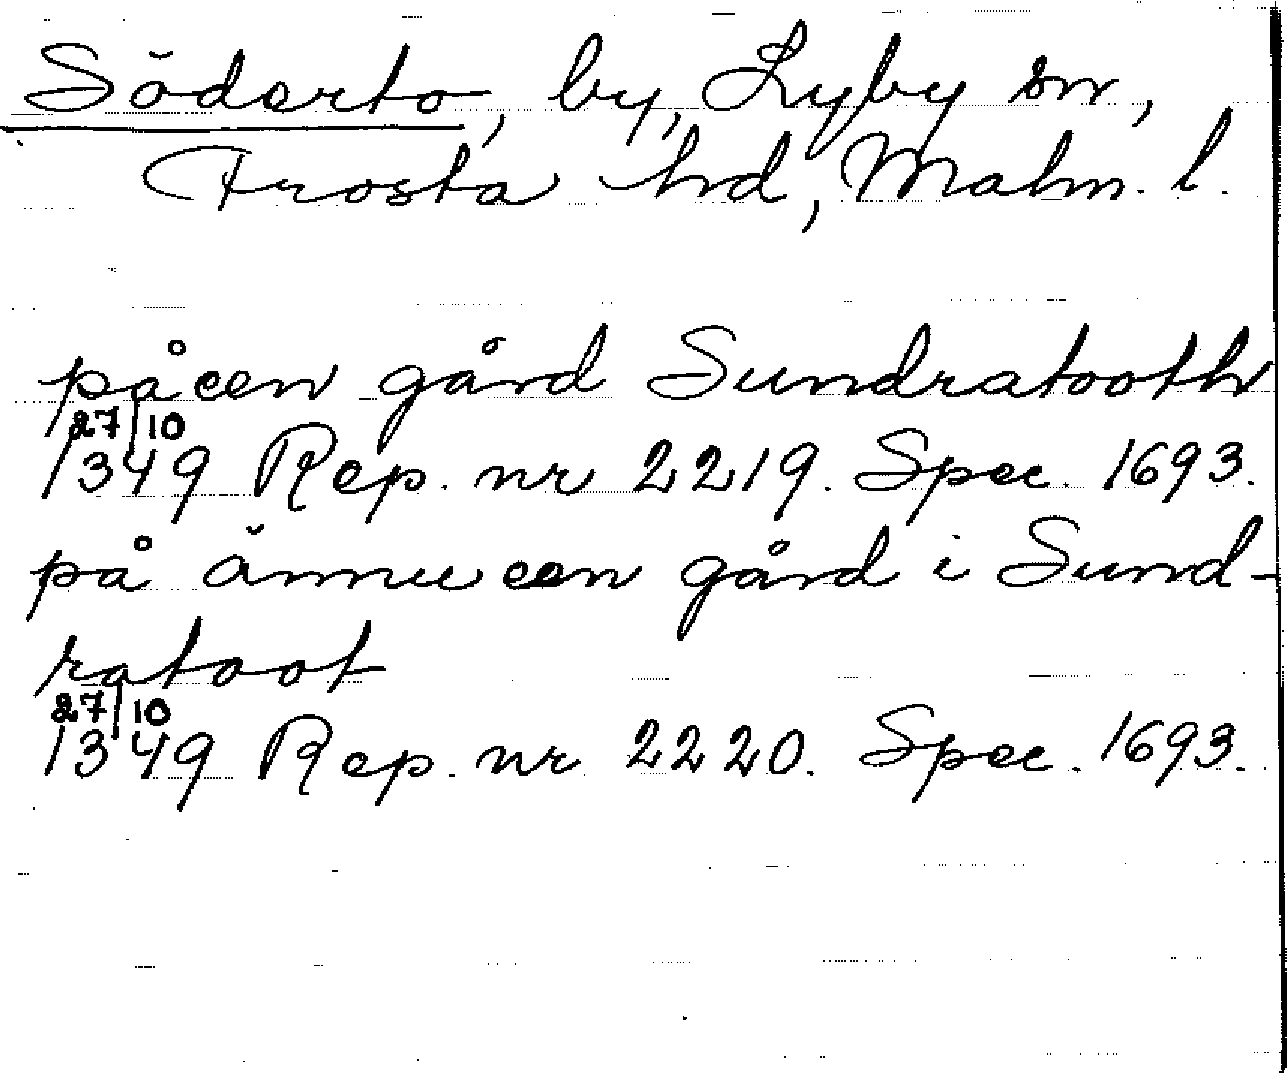 Söderto, by, Lyby sn,
Frosta hd, Malm. l.
på en gård Sundratooth
27/10
1349 Rep. nr 2219. Spec. 1693.
på ännu en gård i Sund-
ratoot
27/10
1349 Rep. nr 2220. Spec. 1693.